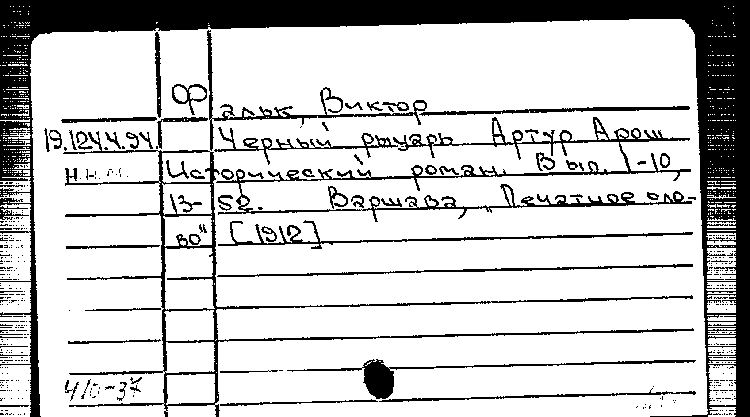 Фальк, Виктор
19.124.4.94. Черный рыцарь Артур Арош
Исторический роман. Вып. 1-10,
13-52. Варшава, "Печатное сло-
во" [1912]
4/0-37